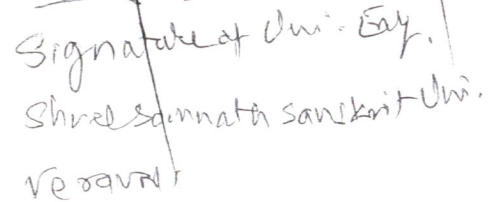 Signature of Uni. Eng.
Shree somnath sanskrit Uni.
Veraval